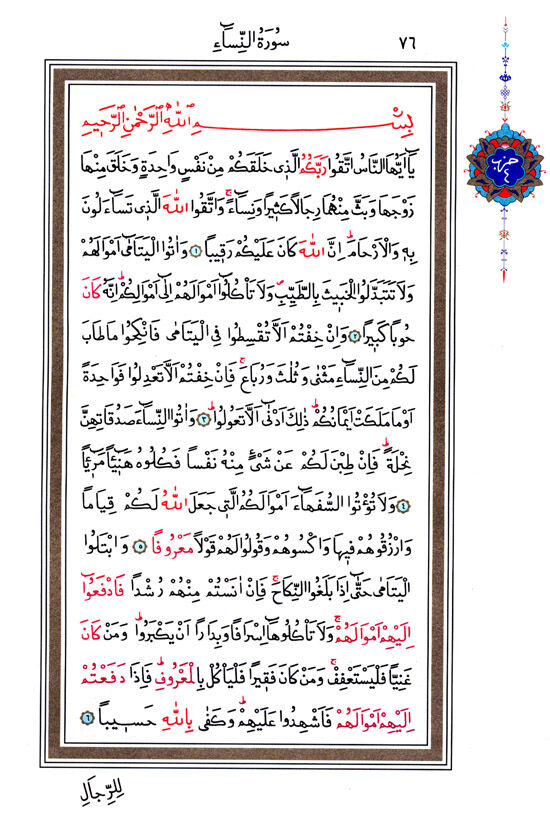 ٧٦ سُورَةُ النِّسَاءِ
حزب ٤
بِسْمِ اللّٰهِ الرَّحْمٰنِ الرَّحِيمِ
يَآ اَيُّهَا النَّاسُ اتَّقُوا رَبَّكُمُ الَّذٖي خَلَقَكُمْ مِنْ نَفْسٍ وَاحِدَةٍ وَخَلَقَ مِنْهَا
زَوْجَهَا وَبَثَّ مِنْهُمَا رِجَالًا كَثٖيرًا وَنِسَآءًۚ وَاتَّقُوا اللّٰهَ الَّذٖي تَسَآءَلُونَ
بِهٖ وَالْاَرْحَامَۜ اِنَّ اللّٰهَ كَانَ عَلَيْكُمْ رَقٖيبًا ﴿١﴾ وَاٰتُوا الْيَتَامٰى اَمْوَالَهُمْ
وَلَا تَتَبَدَّلُوا الْخَبٖيثَ بِالطَّيِّبِۖ وَلَا تَأْكُلُٓوا اَمْوَالَهُمْ اِلٰٓى اَمْوَالِكُمْۜ اِنَّهُ كَانَ
حُوبًا كَبٖيرًا ﴿٢﴾ وَاِنْ خِفْتُمْ اَلَّا تُقْسِطُوا فِي الْيَتَامٰى فَانْكِحُوا مَا طَابَ
لَكُمْ مِنَ النِّسَآءِ مَثْنٰى وَثُلٰثَ وَرُبَاعَۚ فَاِنْ خِفْتُمْ اَلَّا تَعْدِلُوا فَوَاحِدَةً
اَوْ مَا مَلَكَتْ اَيْمَانُكُمْۜ ذٰلِكَ اَدْنٰٓى اَلَّا تَعُولُواۜ ﴿٣﴾ وَاٰتُوا النِّسَآءَ صَدُقَاتِهِنَّ
نِحْلَةًۜ فَاِنْ طِبْنَ لَكُمْ عَنْ شَيْءٍ مِنْهُ نَفْسًا فَكُلُوهُ هَنٖٓيـًٔا مَرٖٓيـًٔا
﴿٤﴾ وَلَا تُؤْتُوا السُّفَهَآءَ اَمْوَالَكُمُ الَّتٖي جَعَلَ اللّٰهُ لَكُمْ قِيَامًا
وَارْزُقُوهُمْ فٖيهَا وَاكْسُوهُمْ وَقُولُوا لَهُمْ قَوْلًا مَعْرُوفًا ﴿٥﴾ وَابْتَلُوا
الْيَتَامٰى حَتّٰٓى اِذَا بَلَغُوا النِّكَاحَۚ فَاِنْ اٰنَسْتُمْ مِنْهُمْ رُشْدًا فَادْفَعُٓوا
اِلَيْهِمْ اَمْوَالَهُمْۚ وَلَا تَأْكُلُوهَٓا اِسْرَافًا وَبِدَارًا اَنْ يَكْبَرُواۜ وَمَنْ كَانَ
غَنِيًّا فَلْيَسْتَعْفِفْۚ وَمَنْ كَانَ فَقٖيرًا فَلْيَأْكُلْ بِالْمَعْرُوفِۜ فَاِذَا دَفَعْتُمْ
اِلَيْهِمْ اَمْوَالَهُمْ فَاَشْهِدُوا عَلَيْهِمْۜ وَكَفٰى بِاللّٰهِ حَسٖيبًا ﴿٦﴾
لِلرِّجَالِ